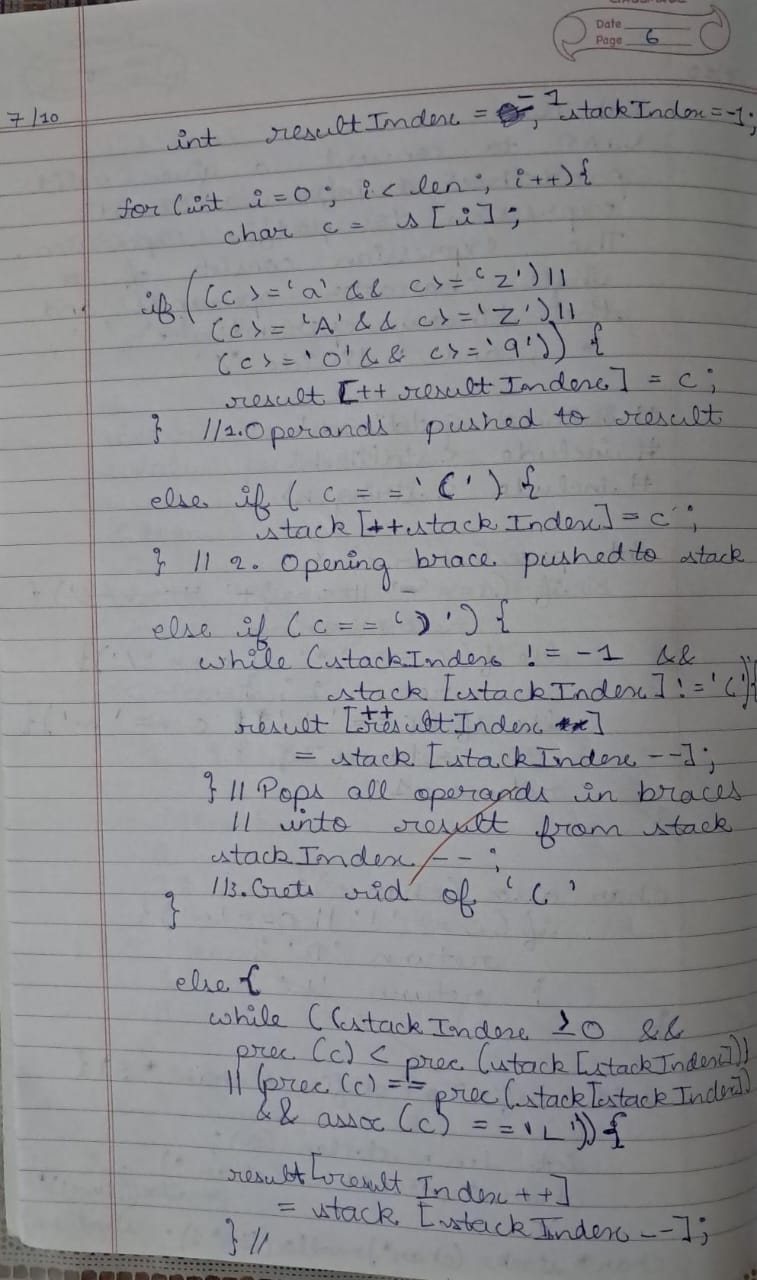 Date
Page 6
7/10
int resultIndex = -1, stackIndex = -1;
for (int i=0; i< len; i++) {
char c = s[i];
if ((c >= 'a' && c >= 'z') ||
(c >= 'A' && c >= 'Z') ||
(c >= '0' && c >= '9')) {
result [++ resultIndex] = c;
} //1. Operands pushed to result
else if ( c == '(' ) {
stack [++stackIndex] = c ;
} // 2. Opening brace pushed to stack
else if (c == ')') {
while (stackIndex != -1 &&
stack [stackIndex] != '('){
result [++resultIndex]
= stack [stackIndex --];
} // Pops all operands in braces
// into result from stack
stackIndex --;
//3. Gets rid of '('
}
else {
while ((stackIndex ≥ 0 &&
prec (c) < prec (stack [stackIndex]))
|| (prec (c) == prec (stack[stackIndex])
&& assoc (c) == 'L')) {
result [result Index ++]
= stack [stackIndex --];
} //